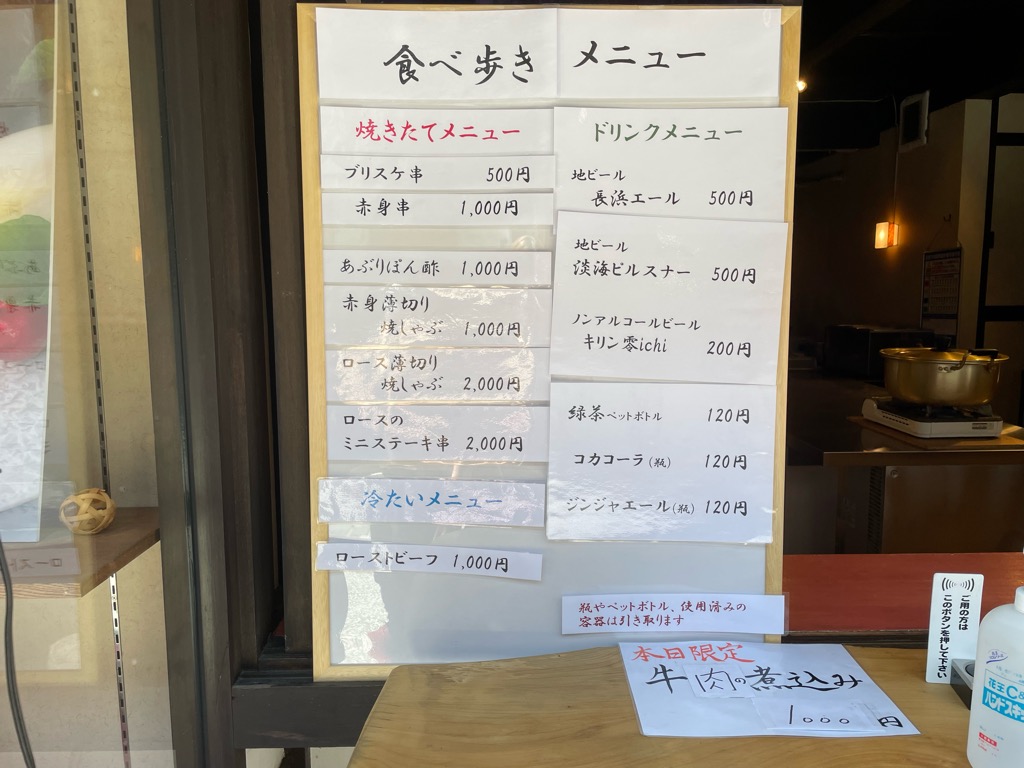 食べ歩き メニュー
焼きたてメニュー
ブリスケ串 500円
赤身串 1,000円
あぶりぽん酢 1,000円
赤身薄切り
焼しゃぶ 1,000円
ロース薄切り
焼しゃぶ 2,000円
ロースの
ミニステーキ串 2,000円
冷たいメニュー
ローストビーフ 1,000円
ドリンクメニュー
地ビール
長浜エール 500円
地ビール
淡海ピルスナー 500円
ノンアルコールビール
キリン零ichi 200円
緑茶ペットボトル 120円
コカコーラ(瓶) 120円
ジンジャエール(瓶) 120円
瓶やペットボトル、使用済みの
容器は引き取ります
本日限定
牛肉の煮込み
1000円
ご用の方は
このボタンを押して下さい
花王
ハンドスキ